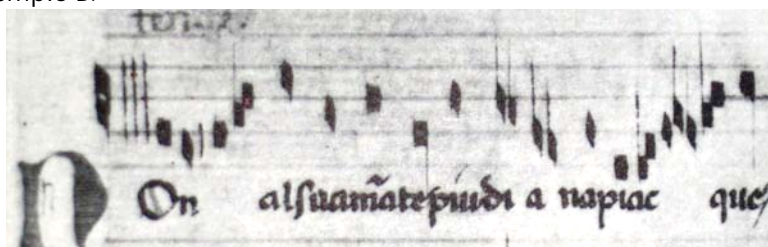 nOn alsuamãtepiudi a napiac que